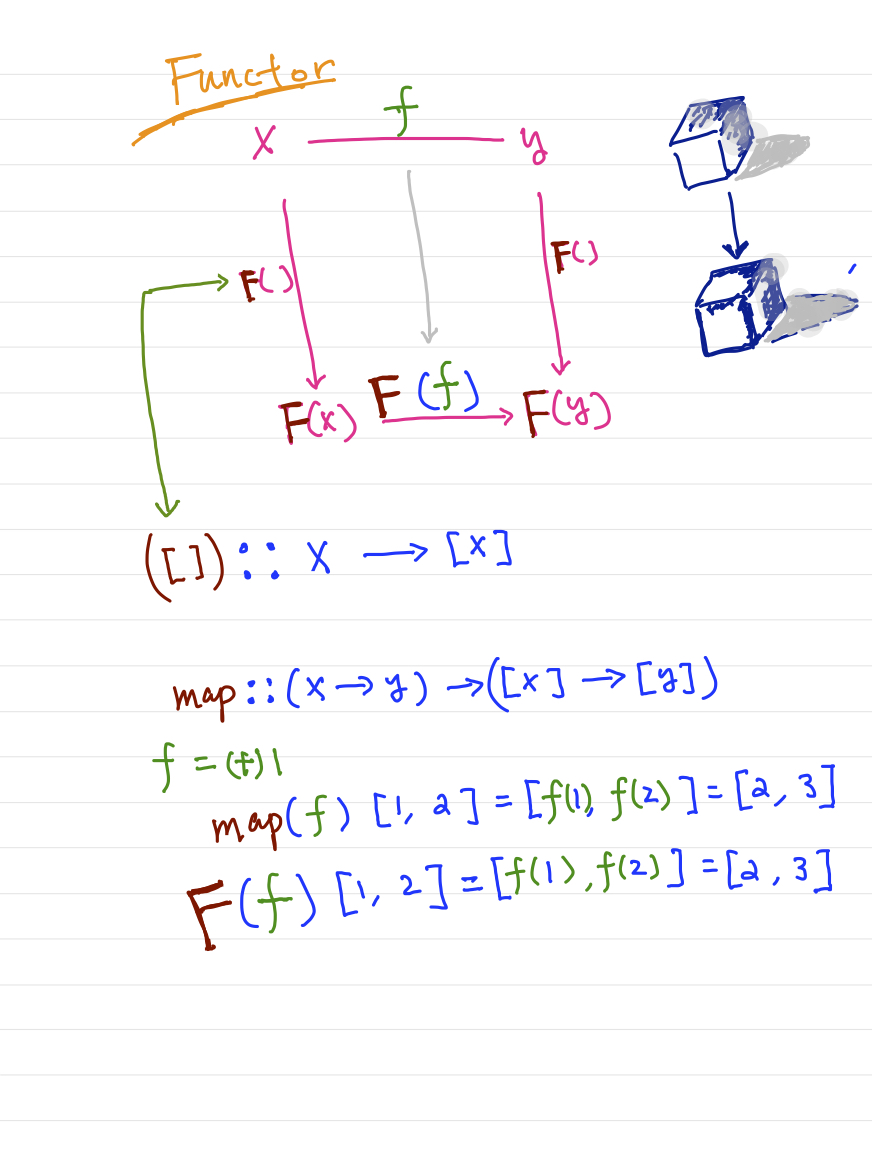 Functor
f
x y
F() F()
F(f)
F(x) F(y)
([]) :: x → [x]
map :: (x → y) → ([x] → [y])
f = (+) 1
map(f) [1, 2] = [f(1), f(2)] = [2, 3]
F(f) [1, 2] = [f(1), f(2)] = [2, 3]